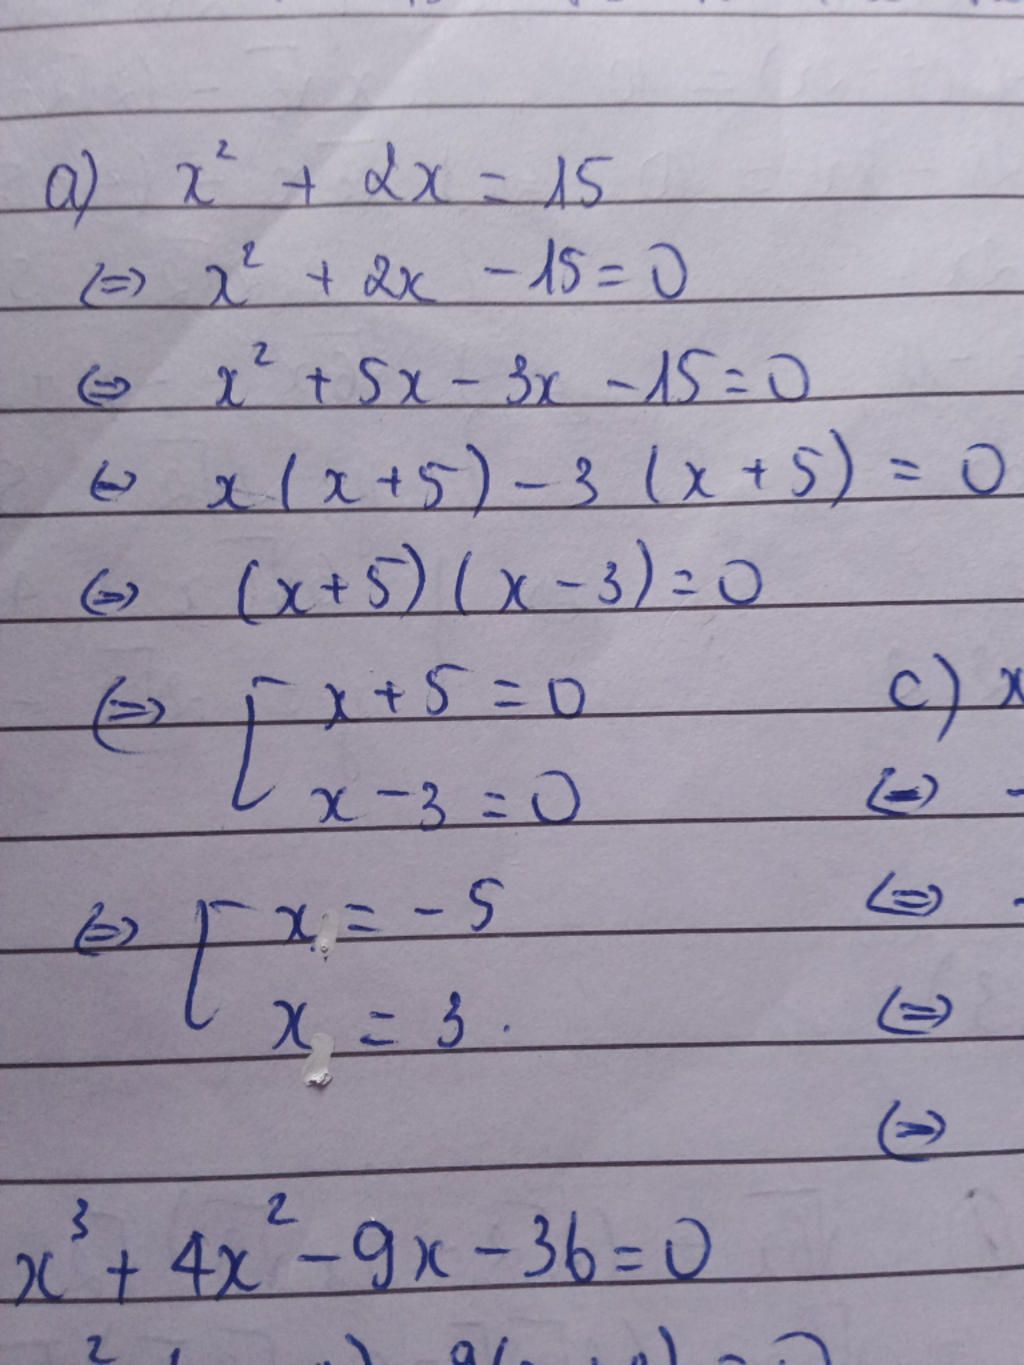 a) x² + 2x = 15
⇔ x² + 2x - 15 = 0
⇔ x² + 5x - 3x - 15 = 0
⇔ x(x+5) - 3(x+5) = 0
⇔ (x+5)(x-3) = 0
⇔ [ x + 5 = 0
x - 3 = 0
⇔ [ x = -5
x = 3.
c) x
⇔ -
⇔ -
⇔
⇔
x³ + 4x² - 9x - 36 = 0